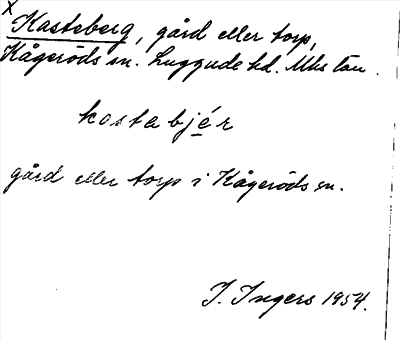 x
Kasteberg, gård eller torp,
Kågeröds sn. Luggude hd. Mhs län.
kostabjér
gård eller torp i Kågeröds sn.
I. Ingers 1954.